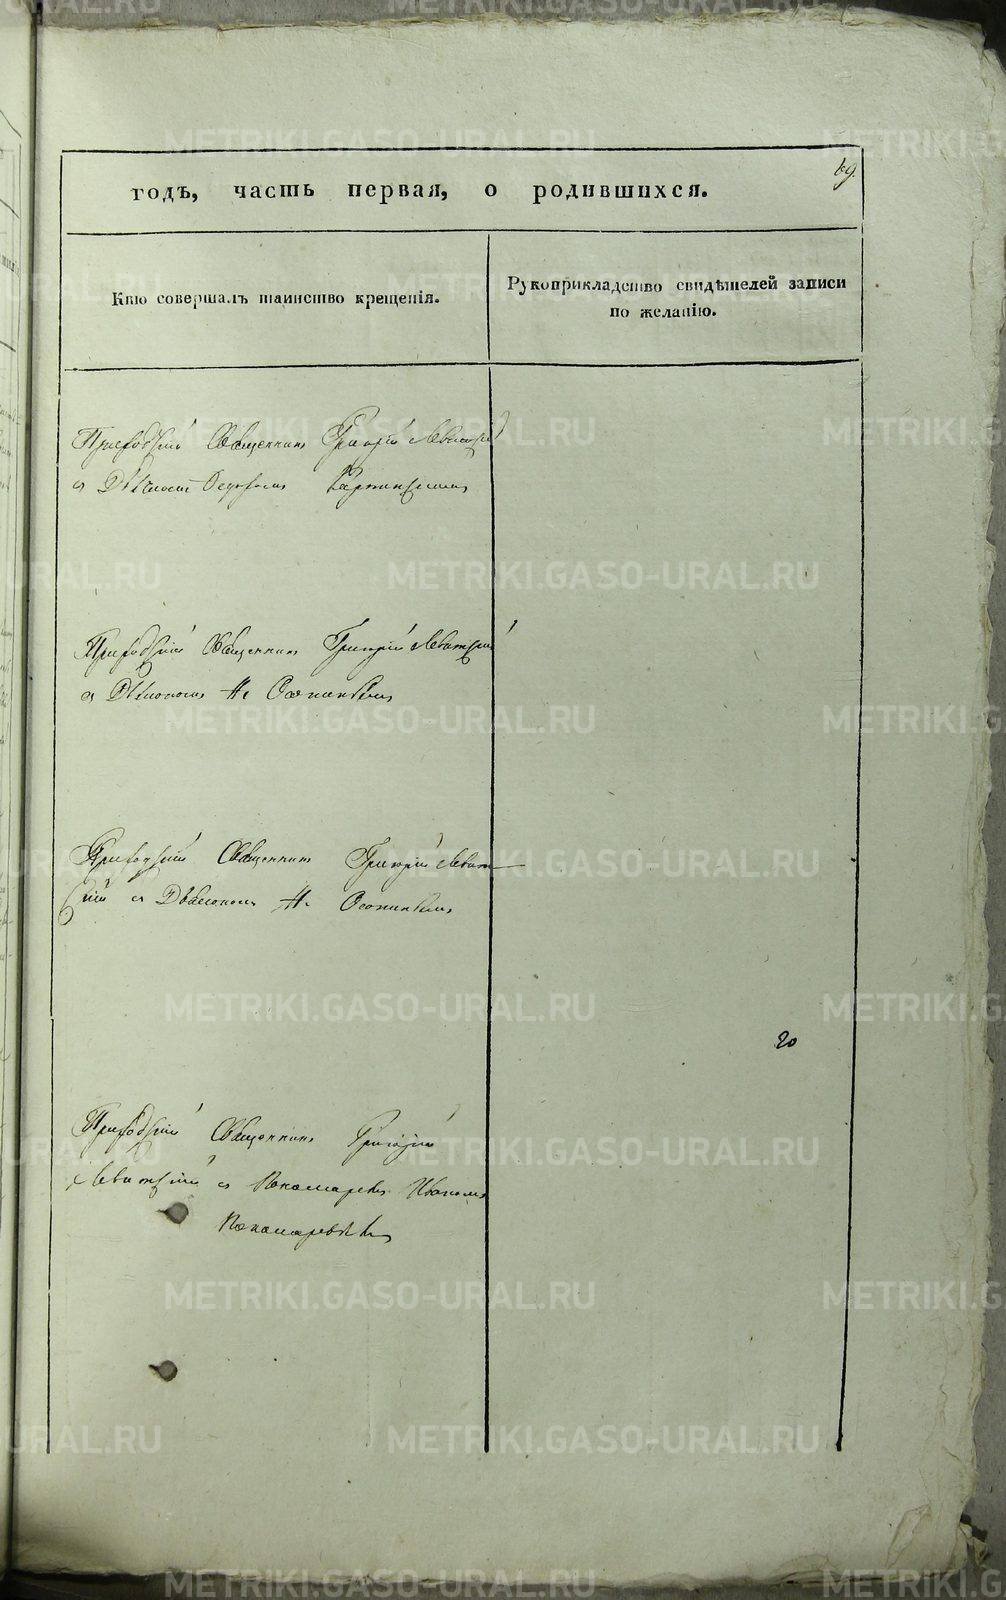 69.
годъ, часть первая, о родившихся.
Кто совершалъ таинство крещенія.
Рукоприкладство свидѣтелей записи
по желанію.
Приходскій Священникъ Григорій Левитскій
съ Дьячкомъ
Приходскій Священникъ Григорій Левитскій
съ Дьякономъ
Приходскій Священникъ Григорій Левит
скій съ Дьякономъ
20
Приходскій Священникъ Григорій
Левитскій съ Пономаремъ Иваномъ
Пономаревымъ
METRIKI.GASO-URAL.RU